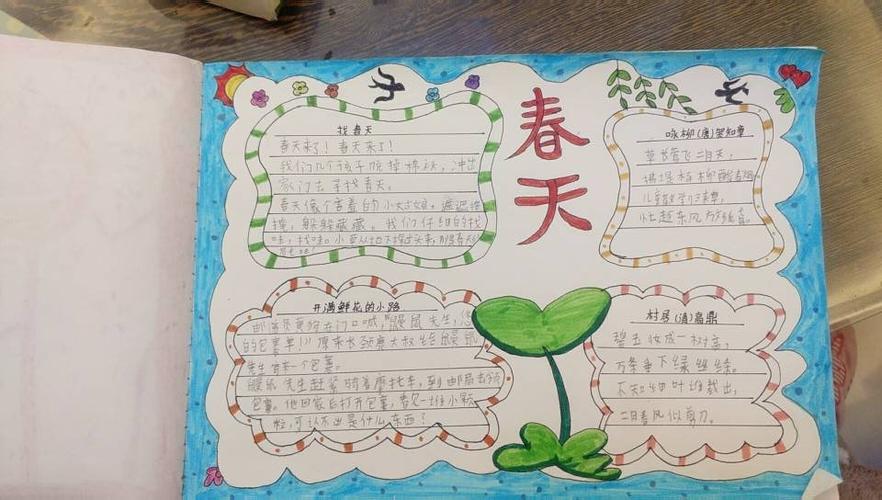 春天
找春天
春天来了！春天来了！
我们几个孩子脱掉棉袄，冲出
家门去寻找春天。
春天像个害羞的小姑娘，遮遮掩
掩，躲躲藏藏。我们仔细的找
哇，找哇。小草从地下探出头来，那是春天的
咏柳(唐)贺知章
草长莺飞二月天，
拂堤杨柳醉春烟
儿童散学归来早，
忙趁东风放纸鸢
开满鲜花的小路
邮递员黄狗在门口喊，"鼹鼠先生，您
的包裹单！"原来长颈鹿大叔给鼹鼠
先生寄来一个包裹。
鼹鼠先生赶紧骑着摩托车，到邮局去领
包裹。他回家后打开包裹，看见一堆小颗
粒，可认不出是什么东西？
村居(清)高鼎
碧玉妆成一树高，
万条垂下绿丝绦。
不知细叶谁裁出，
二月春风似剪刀。